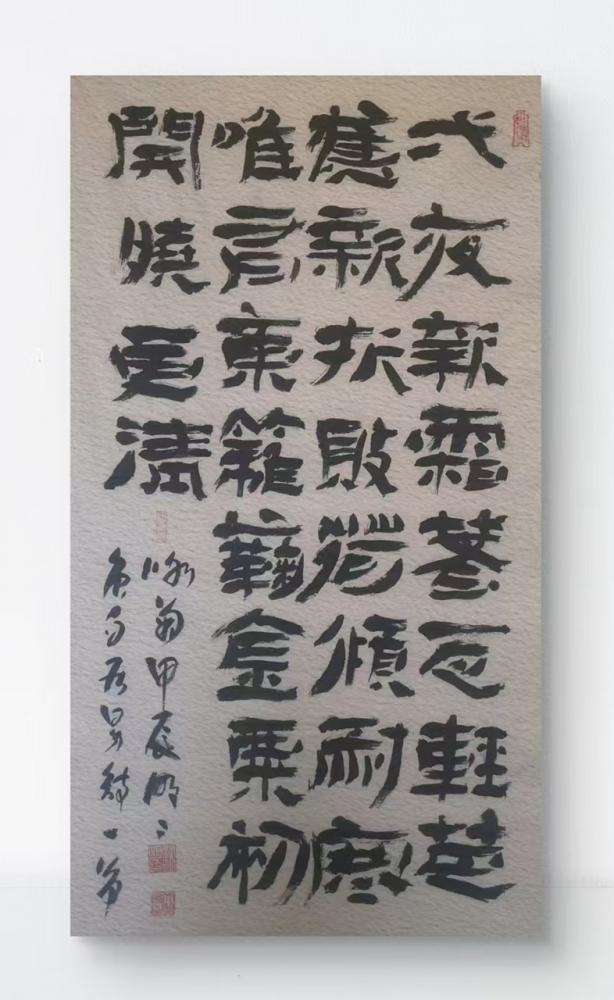 弌夜新霜著瓦輕芭
蕉新折敗荷傾耐寒
唯有東籬蘜金粟初
開曉更清
咏菊甲辰
唐白居易詩一首